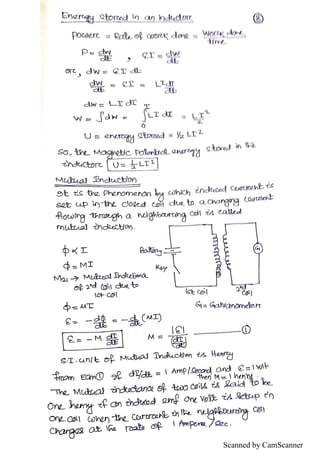 Energy Stored in an Inductor. (8)
Power = Rate of work done = Work done / time
P = dw/dt , εI = dw/dt
or, dw = εI dt
dw/dt = εI = LI dI/dt
dw = LI dI
W = ∫dw = ∫₀ᴵ LI dI = LI²/2
U = energy stored = ½ LI²
So, the Magnetic Potential energy stored in the
inductor U = ½ LI²
Mutual Induction
It is the Phenomenon by which induced current is
set up in the closed coil due to a changing current
flowing through a neighbouring coil is called
mutual induction.
ϕ ∝ I
Battery
G
ϕ = MI
Key
M₂₁ → Mutual Inductance
of 2nd coil due to
1st coil
1st coil 2nd coil
ϕ = MI
G = Galvanometer
ε = -dϕ/dt = -d/dt (MI)
ε = -M dI/dt
M = |ε| / dI/dt ①
S.I. unit of Mutual Induction is Henry
from Eqn ① if dI/dt = 1 Amp/Second and ε = 1 volt
then M = 1 henry
"The Mutual inductance of two coils is said to be
One henry if an induced emf one volt is setup in
one coil when the current in the neighbouring coil
changes at the rate of 1 Ampere / sec.
Scanned by CamScanner